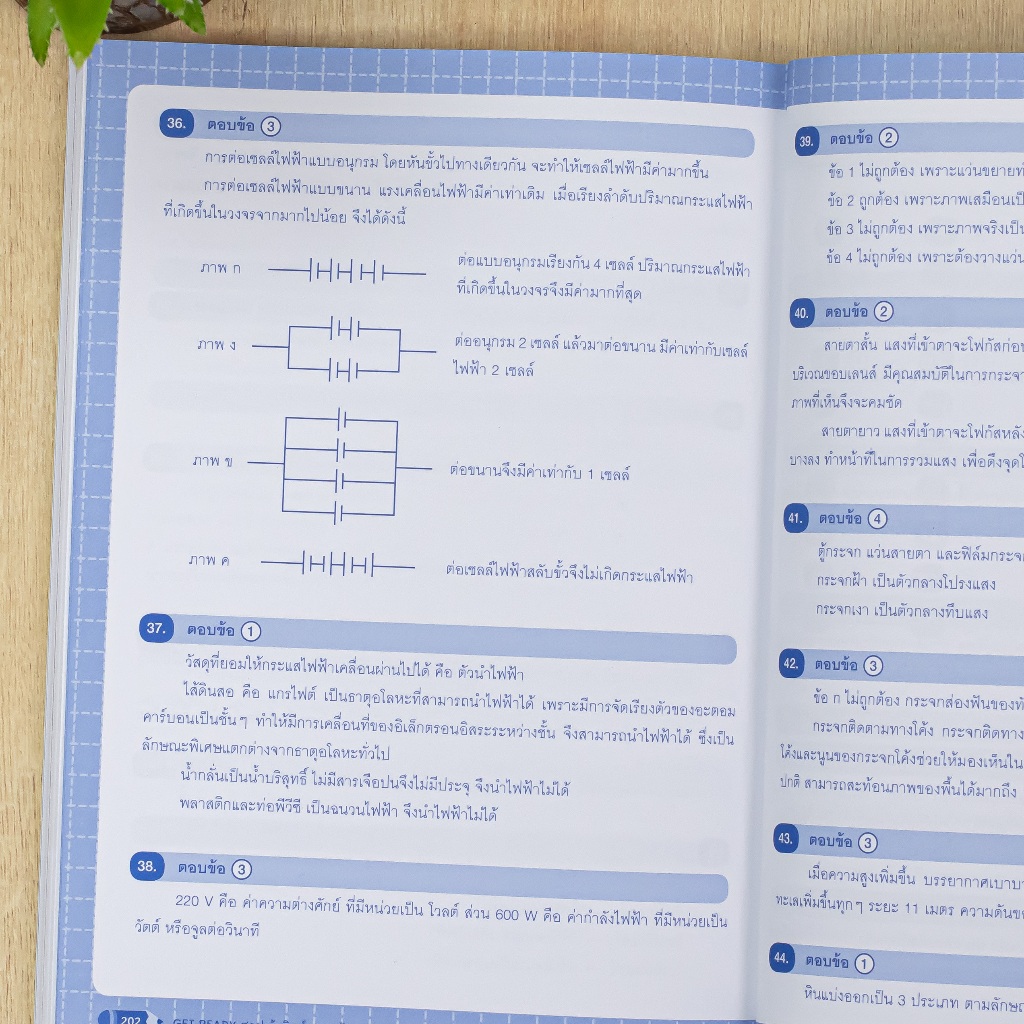 36. ตอบข้อ 3
การต่อเซลล์ไฟฟ้าแบบอนุกรม โดยหันขั้วไปทางเดียวกัน จะทำให้เซลล์ไฟฟ้ามีค่ามากขึ้น
การต่อเซลล์ไฟฟ้าแบบขนาน แรงเคลื่อนไฟฟ้ามีค่าเท่าเดิม เมื่อเรียงลำดับปริมาณกระแสไฟฟ้า
ที่เกิดขึ้นในวงจรจากมากไปน้อย จึงได้ดังนี้
ภาพ ก
ต่อแบบอนุกรมเรียงกัน 4 เซลล์ ปริมาณกระแสไฟฟ้า
ที่เกิดขึ้นในวงจรจึงมีค่ามากที่สุด
ภาพ ง
ต่ออนุกรม 2 เซลล์ แล้วมาต่อขนาน มีค่าเท่ากับเซลล์
ไฟฟ้า 2 เซลล์
ภาพ ข
ต่อขนานจึงมีค่าเท่ากับ 1 เซลล์
ภาพ ค
ต่อเซลล์ไฟฟ้าสลับขั้วจึงไม่เกิดกระแสไฟฟ้า
37. ตอบข้อ 1
วัสดุที่ยอมให้กระแสไฟฟ้าเคลื่อนผ่านไปได้ คือ ตัวนำไฟฟ้า
ไส้ดินสอ คือ แกรไฟต์ เป็นธาตุอโลหะที่สามารถนำไฟฟ้าได้ เพราะมีการจัดเรียงตัวของอะตอม
คาร์บอนเป็นชั้นๆ ทำให้มีการเคลื่อนที่ของอิเล็กตรอนอิสระระหว่างชั้น จึงสามารถนำไฟฟ้าได้ ซึ่งเป็น
ลักษณะพิเศษแตกต่างจากธาตุอโลหะทั่วไป
น้ำกลั่นเป็นน้ำบริสุทธิ์ ไม่มีสารเจือปนจึงไม่มีประจุ จึงนำไฟฟ้าไม่ได้
พลาสติกและท่อพีวีซี เป็นฉนวนไฟฟ้า จึงนำไฟฟ้าไม่ได้
38. ตอบข้อ 3
220 V คือ ค่าความต่างศักย์ ที่มีหน่วยเป็น โวลต์ ส่วน 600 W คือ ค่ากำลังไฟฟ้า ที่มีหน่วยเป็น
วัตต์ หรือจูลต่อวินาที
202 GET READY
39. ตอบข้อ 2
ข้อ 1 ไม่ถูกต้อง เพราะแว่นขยาย
ข้อ 2 ถูกต้อง เพราะภาพเสมือน
ข้อ 3 ไม่ถูกต้อง เพราะภาพจริงเป็น
ข้อ 4 ไม่ถูกต้อง เพราะต้องวางแว่น
40. ตอบข้อ 2
สายตาสั้น แสงที่เข้าตาจะโฟกัสก่อน
บริเวณขอบเลนส์ มีคุณสมบัติในการกระจา
ภาพที่เห็นจึงจะคมชัด
สายตายาว แสงที่เข้าตาจะโฟกัสหลัง
บางลง ทำหน้าที่ในการรวมแสง เพื่อดึงจุด
41. ตอบข้อ 4
ตู้กระจก แว่นสายตา และฟิล์มกระจก
กระจกฝ้า เป็นตัวกลางโปร่งแสง
กระจกเงา เป็นตัวกลางทึบแสง
42. ตอบข้อ 3
ข้อ ก ไม่ถูกต้อง กระจกส่องฟันของ
กระจกติดตามทางโค้ง กระจกติดทาง
โค้งและนูนของกระจกโค้งช่วยให้มองเห็นใน
ปกติ สามารถสะท้อนภาพของพื้นได้มากถึง
43. ตอบข้อ 3
เมื่อความสูงเพิ่มขึ้น บรรยากาศเบาบา
ทะเลเพิ่มขึ้นทุกๆ ระยะ 11 เมตร ความดัน
44. ตอบข้อ 1
หินแบ่งออกเป็น 3 ประเภท ตามลักษณ